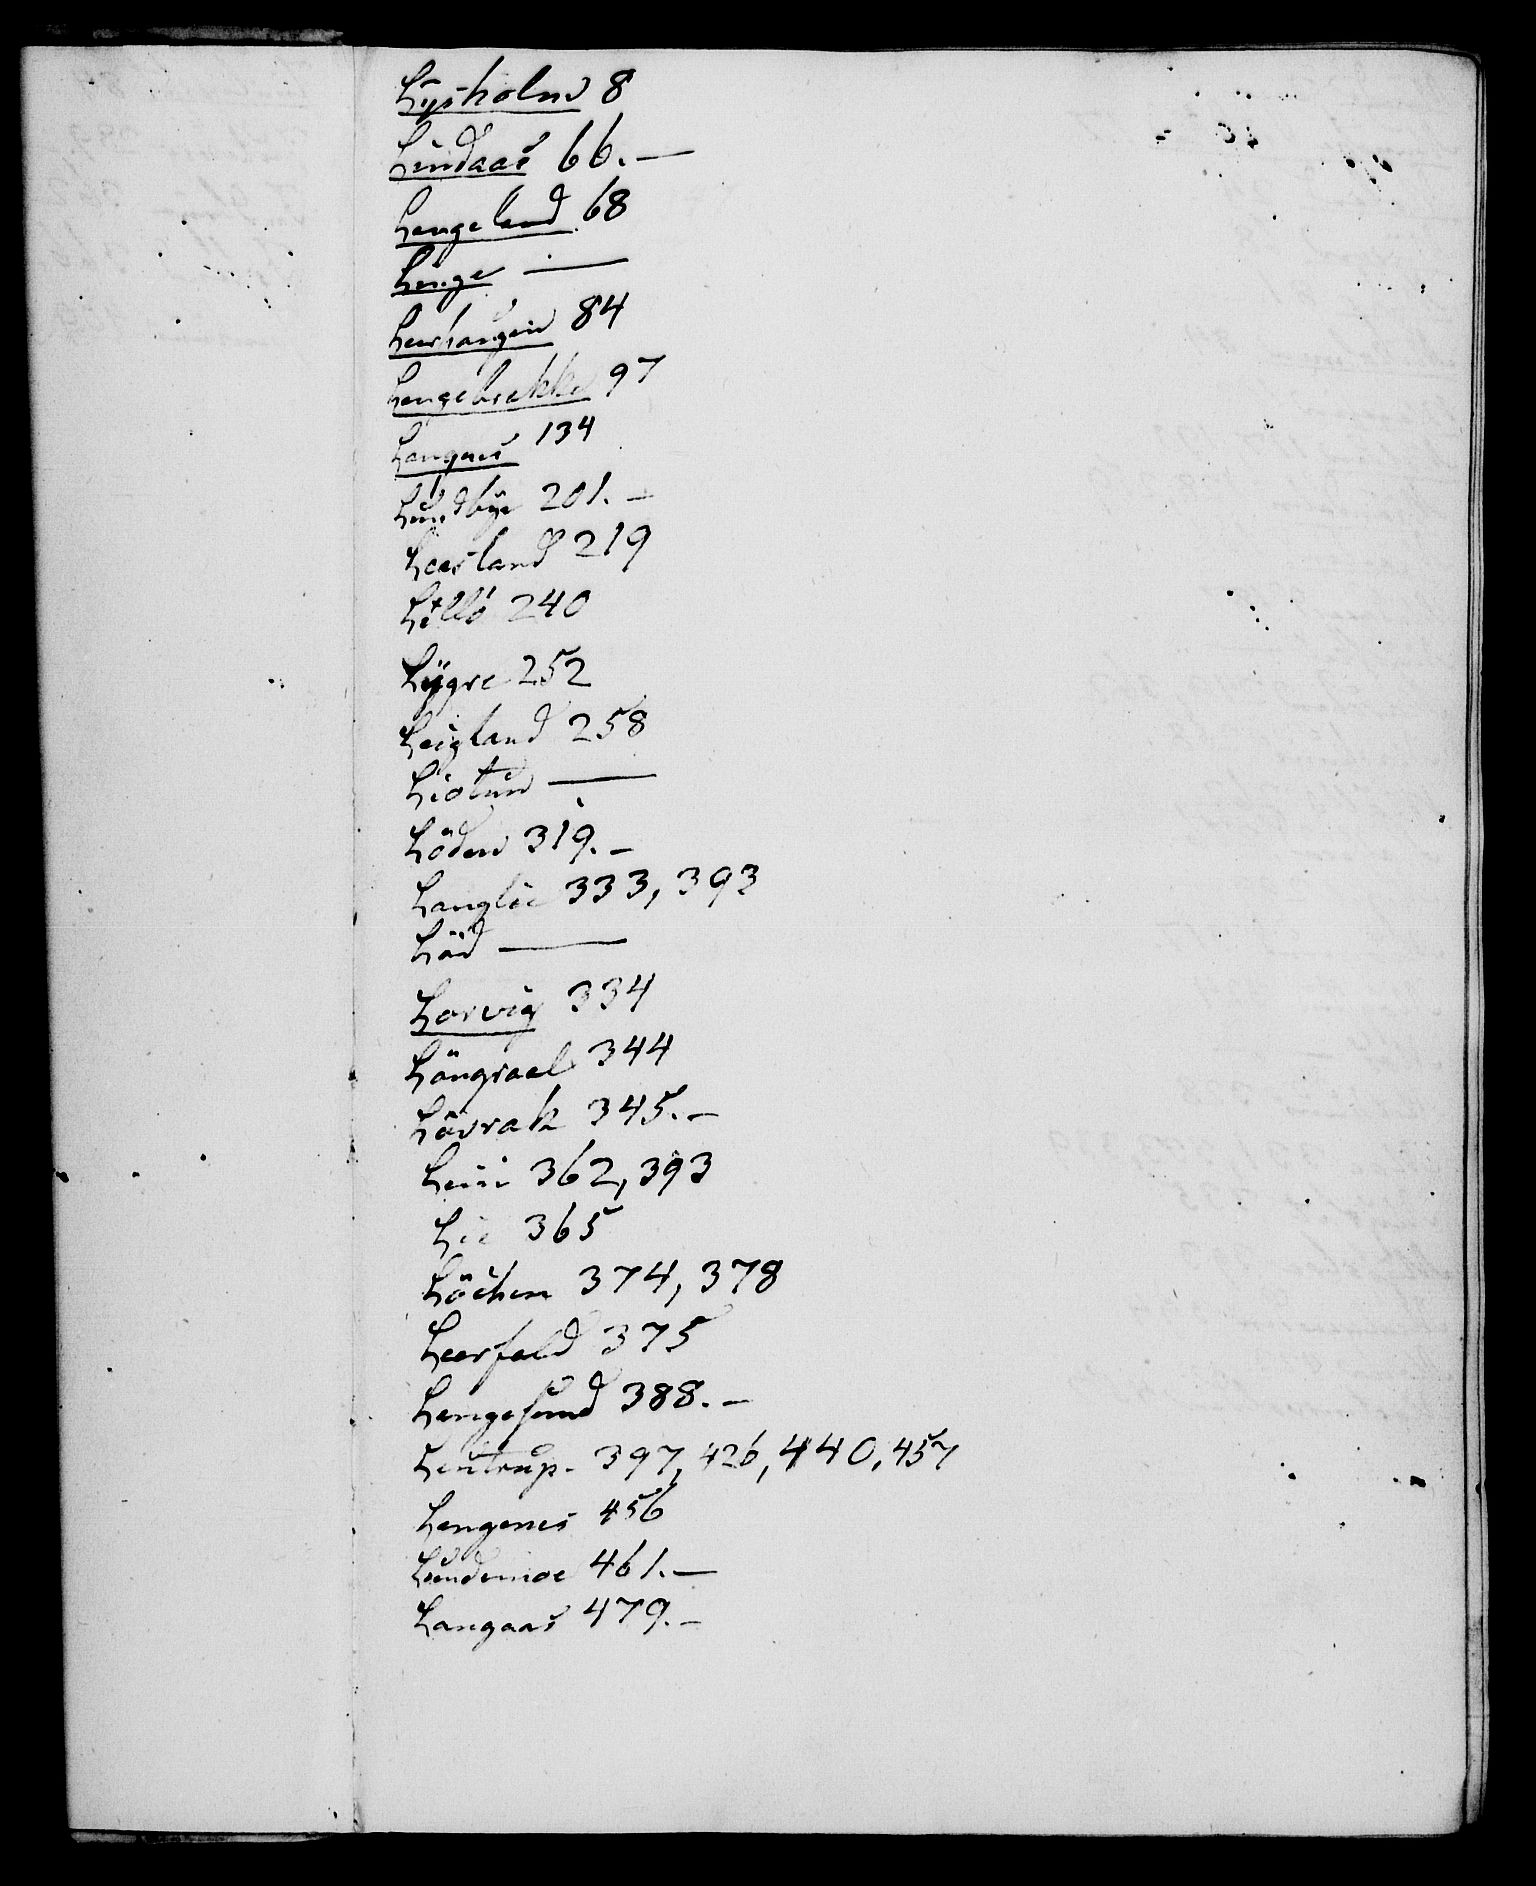 Lysholm 8
Lindaas 66. —
Langeland 68
Linge —
Leerhaugen 84
Langebrekke 97
Langnes 134
Lundbye 201. —
Leerland 219
Lillö 240
Lÿgre 252
Leigland 258
Liotun —
Löden 319. —
Langlie 333, 393
Löd —
Larvig 334
Längraal 344
Lövrak 345. —
Leiri 362, 393
Lie 365
Löchen 374, 378
Leerfald 375
Langesund 388. —
Lentrup. 397, 426, 440, 457
Langenes 456
Lundemoe 461. —
Langaas 479. —